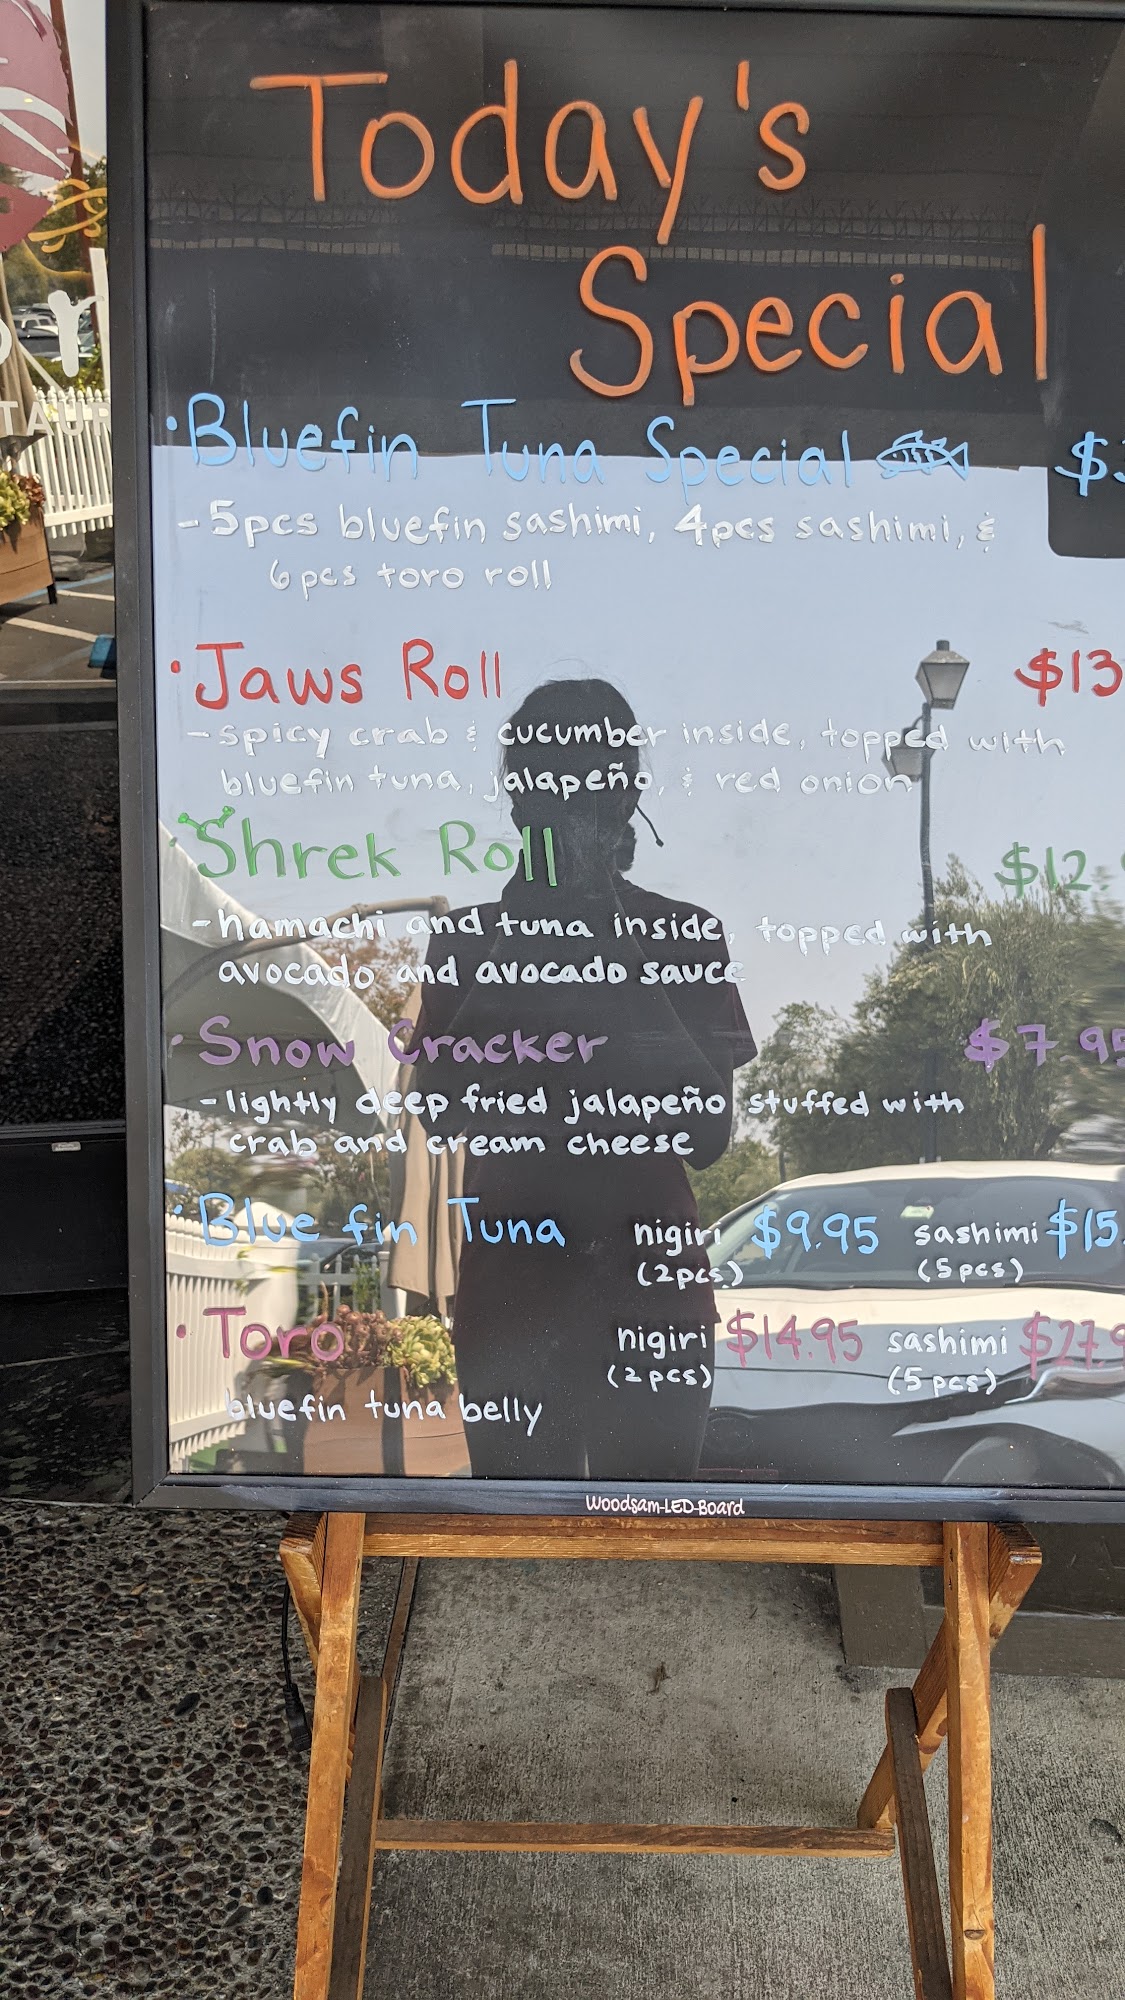 Today's
Special
• Bluefin Tuna Special $3
- 5pcs bluefin sashimi, 4pcs sashimi, &
6pcs toro roll
• Jaws Roll $13
- spicy crab & cucumber inside, topped with
bluefin tuna, jalapeño, & red onion
• Shrek Roll $12.9
- hamachi and tuna inside, topped with
avocado and avocado sauce
• Snow Cracker $7 95
- lightly deep fried jalapeño stuffed with
crab and cream cheese
• Blue fin Tuna nigiri $9.95 sashimi $15.
(2pcs) (5pcs)
• Toro nigiri $14.95 sashimi $27.9
(2pcs) (5pcs)
bluefin tuna belly
Woodsam-LED-Board